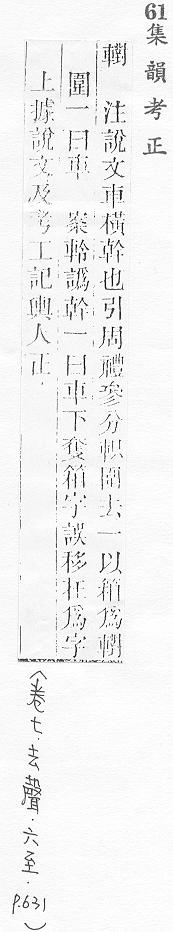 61集韻考正
轛 注說文車橫幹也引周禮參分軹圍去一以箱爲轛
圍一曰車 案軨譌幹一曰車下奪箱字誤移在爲字
上據說文及考工記輿人正
(卷七·去聲·六至·P.631)